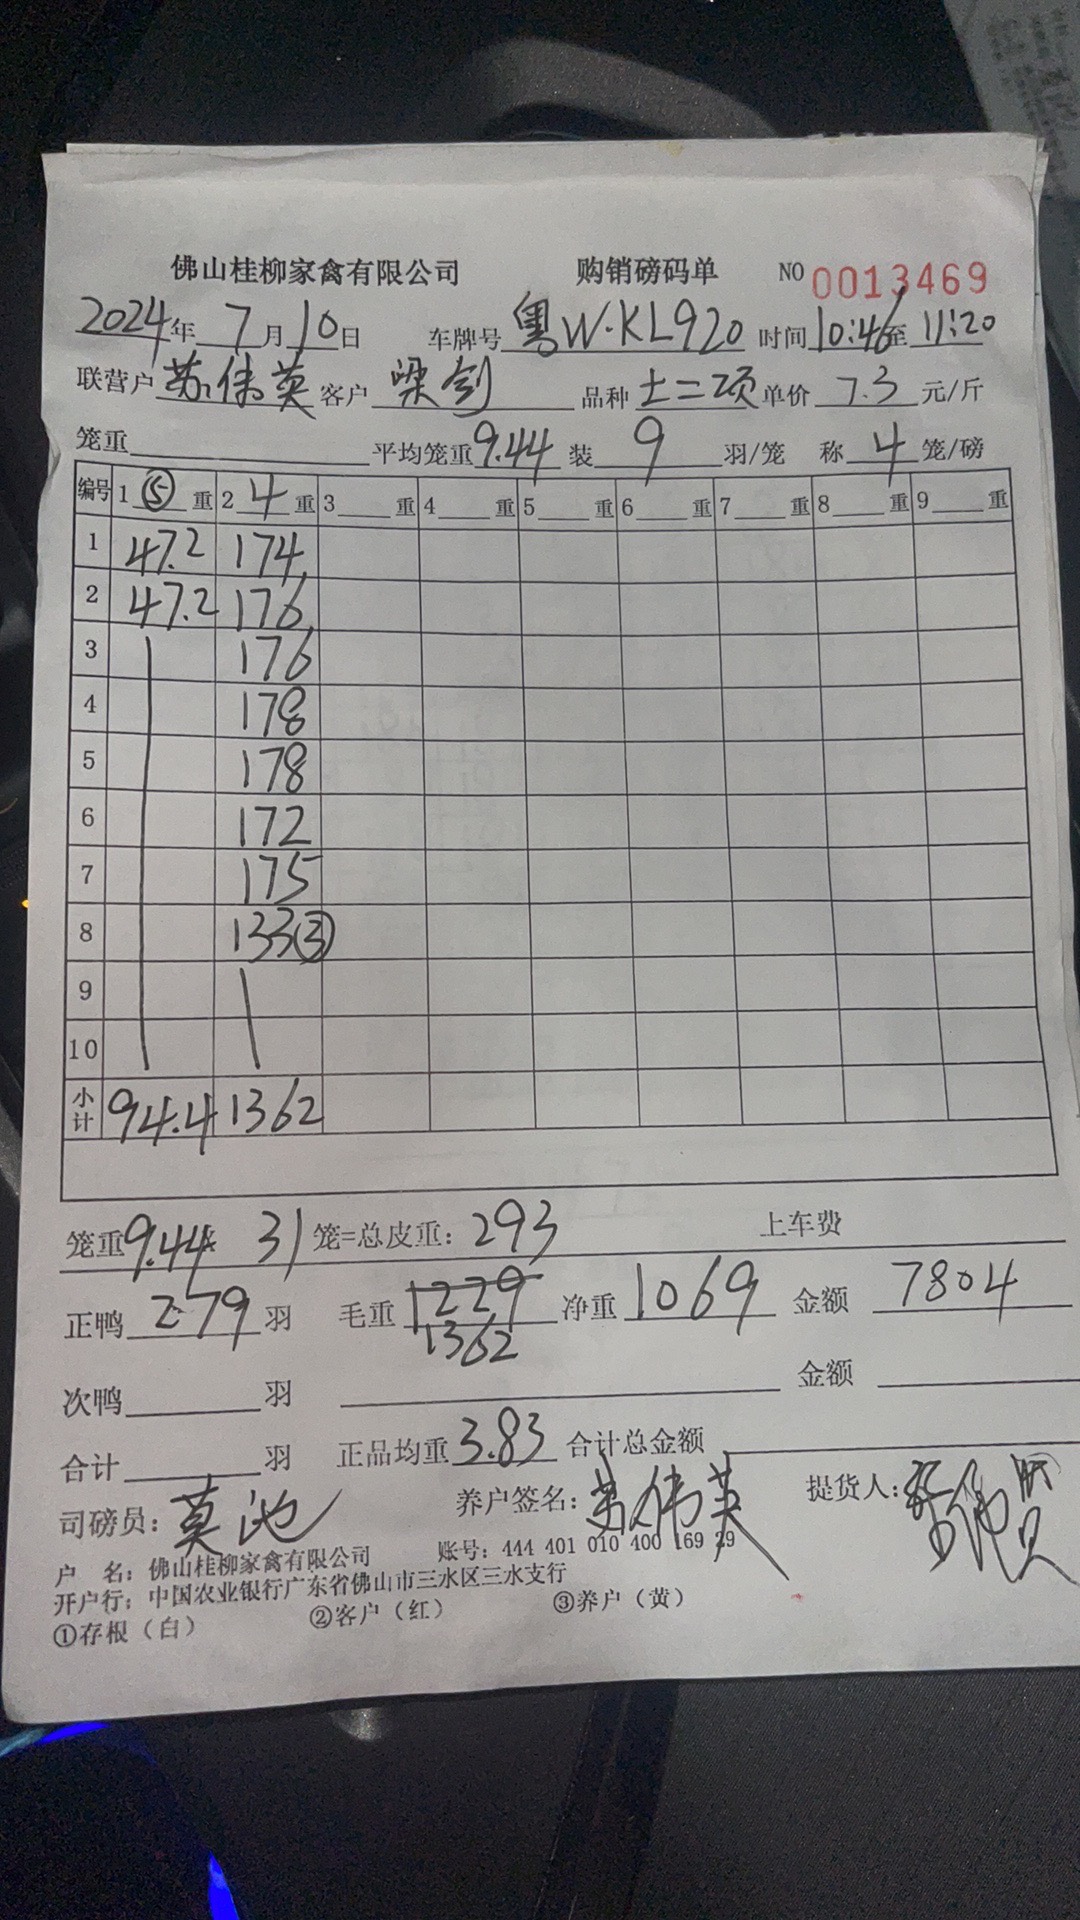 佛山桂柳家禽有限公司 购销磅码单 NO 0013469
2024年 7月10日 车牌号 粤W·KL920 时间10:46至 11:20
联营户 苏伟英 客户 梁剑 品种 土二项 单价 7.3 元/斤
笼重 平均笼重9.44 装 9 羽/笼 称 4 笼/磅
编号 1 ⑤ 重 2 4 重 3 重 4 重 5 重 6 重 7 重 8 重 9 重
1 47.2 174
2 47.2 176
3 176
4 178
5 178
6 172
7 175
8 133③
9
10
小计 94.4 1362
笼重9.44× 31 笼=总皮重：293 上车费
正鸭 279 羽 毛重 1229 净重 1069 金额 7804
1362
次鸭 羽 金额
合计 羽 正品均重 3.83 合计总金额
司磅员：莫池 养户签名：苏伟英 提货人：
户 名：佛山桂柳家禽有限公司 账号：444 401 010 400 169 29
开户行：中国农业银行广东省佛山市三水区三水支行
①存根（白） ②客户（红） ③养户（黄）